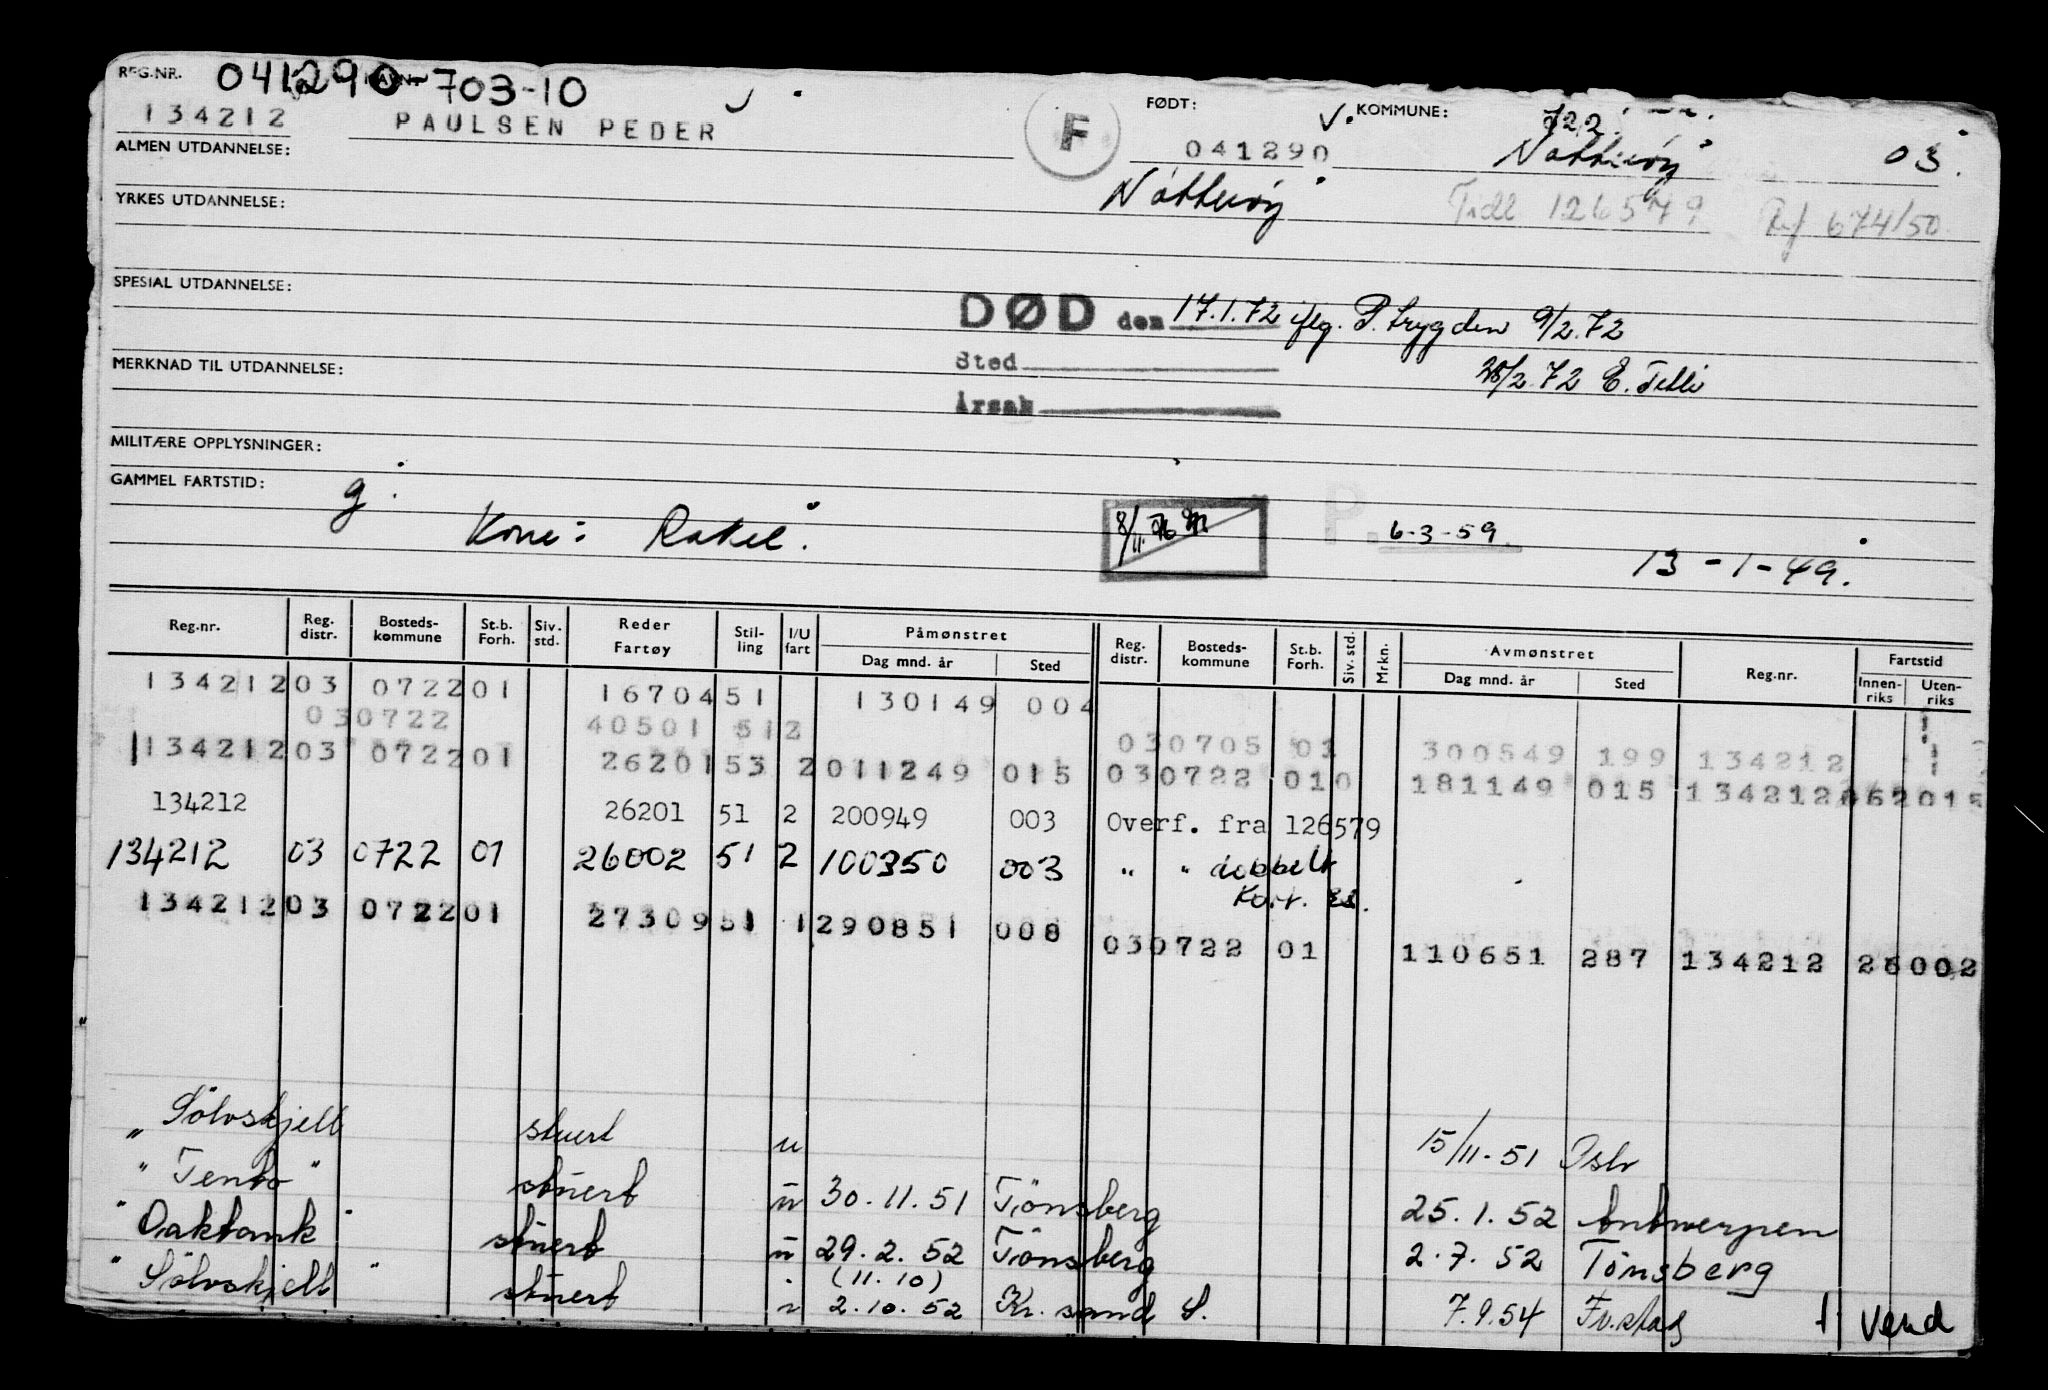 REG.NR. 041290-703-10
134212 PAULSEN PEDER F FØDT: 041290 KOMMUNE: 722 Nøtterøy 03
ALMEN UTDANNELSE:
Nøtterøy Tidl 126579 Ref 674/50
YRKES UTDANNELSE:
SPESIAL UTDANNELSE:
DØD den 17.1.72 iflg. P. trygden 9/2.72
Sted
28/2.72
MERKNAD TIL UTDANNELSE:
Årsak
MILITÆRE OPPLYSNINGER:
GAMMEL FARTSTID: g.
Kone: Rakel. 8/11. P. 6-3-59 13-1-49.
Reg.nr. Reg. distr. Bosteds- kommune St.b. Forh. Siv. std. Reder Fartøy Stil- ling I/U fart Påmønstret Dag mnd. år Sted Reg. distr. Bosteds- kommune St.b. Forh. Siv. std. Mrkn. Avmønstret Dag mnd. år Sted Reg.nr. Fartstid Innen- riks Uten- riks
134212 03 0722 01 16704 51 130149 004
030722 40501 512 030705 01 300549 199 134212
134212 03 0722 01 26201 53 2 011249 015 030722 010 181149 015 134212
134212 26201 51 2 200949 003 Overf. fra 126579
134212 03 0722 01 26002 51 2 100350 003 " " dobbelt
kort.
134212 03 0722 01 27309 51 1 290851 008 030722 01 110651 287 134212 26002
"Sølvskjell stuert u 15/11-51 Oslo
"Tento" stuert u 30.11.51 Tønsberg 25.1.52 Antwerpen
"Oaktank" stuert u 29.2.52 Tønsberg 2.7.52 Tønsberg
(11.10)
"Sølvskjell" stuert 2.10.52 Kr. sand S. 7.9.54 Fr.stad Vend